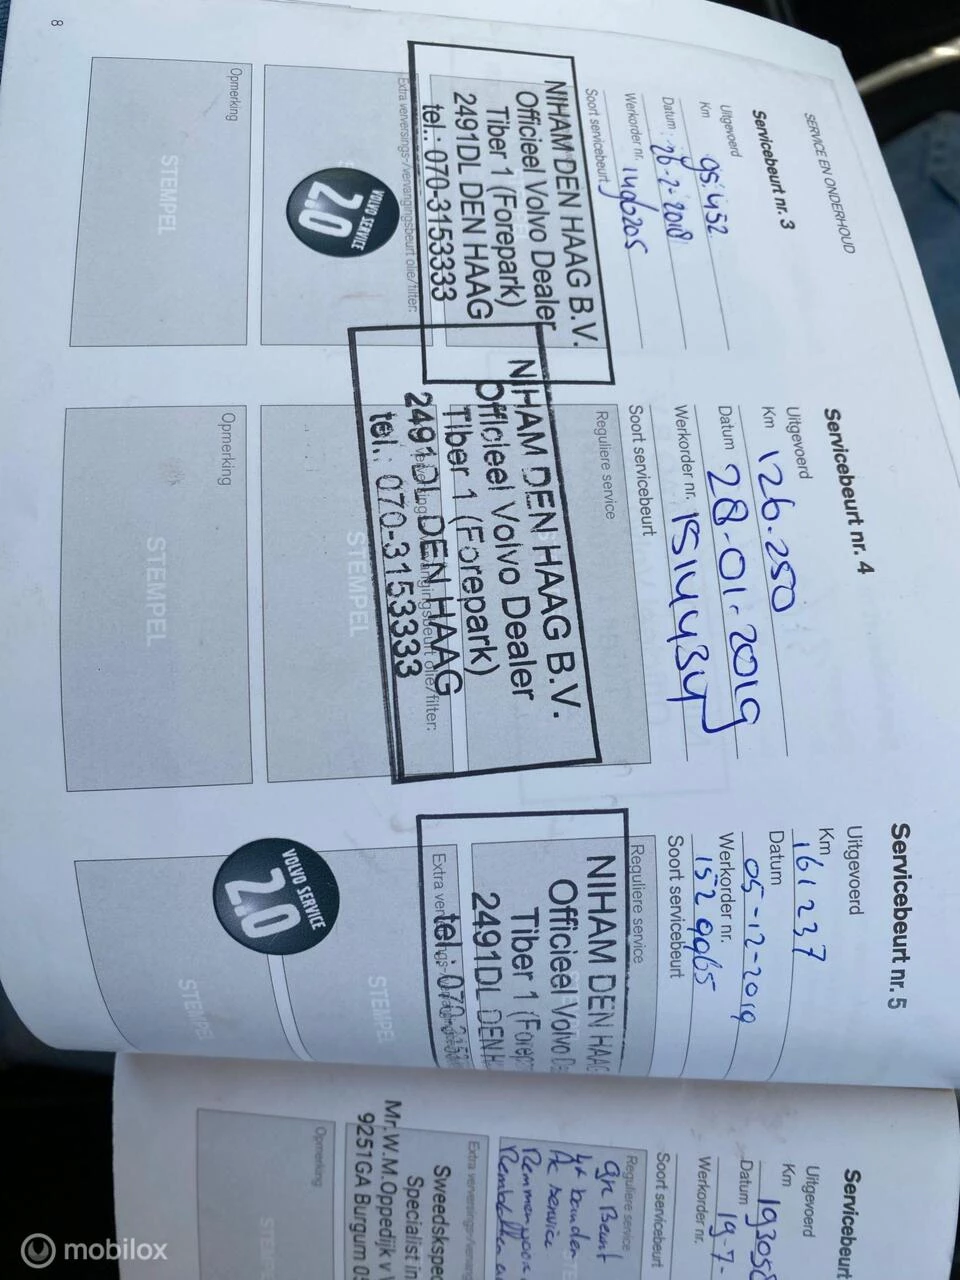 SERVICE EN ONDERHOUD
Servicebeurt nr. 3
Uitgevoerd
Km 95.452
Datum 26-2-2018
Werkorder nr. 1496205
Soort servicebeurt
NIHAM DEN HAAG B.V.
Officieel Volvo Dealer
Tiber 1 (Forepark)
2491DL DEN HAAG
tel.: 070-3153333
Extra verversings-/vervangingsbeurt olie/filter:
VOLVO SERVICE
2.0
Opmerking
STEMPEL
8
Servicebeurt nr. 4
Uitgevoerd
Km 126.250
Datum 28-01-2019
Werkorder nr. 1514434
Soort servicebeurt
Reguliere service
NIHAM DEN HAAG B.V.
Officieel Volvo Dealer
Tiber 1 (Forepark)
2491DL DEN HAAG
tel.: 070-3153333
vervangingsbeurt olie/filter:
STEMPEL
Opmerking
STEMPEL
Servicebeurt nr. 5
Uitgevoerd
Km
161237
Datum
05-12-2019
Werkorder nr.
1529965
Soort servicebeurt
Reguliere service
NIHAM DEN HAAG
Officieel Volvo
Tiber 1 (Forep
2491DL DEN H
tel.: 070-3153
Extra verversings-
STEMPEL
VOLVO SERVICE
2.0
STEMPEL
Servicebeurt
Uitgevoerd
Km 193058
Datum 19-7-
Werkorder nr.
Soort servicebeurt
Reguliere service
gr Beurt
4x banden
Ac service
Remmen voor
Remblokken
Extra verversings-/vervang
Sweedskspec
Specialist in
Mr.W.M.Oppedijk v
9251GA Burgum 05
Opmerking
STE
mobilox